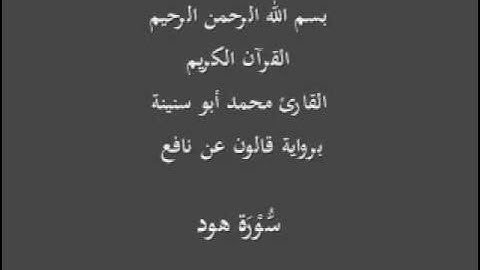 بسم الله الرحمن الرحيم
القرآن الكريم
القارئ محمد أبو سنينة
برواية قالون عن نافع
سُّوْرَة هود